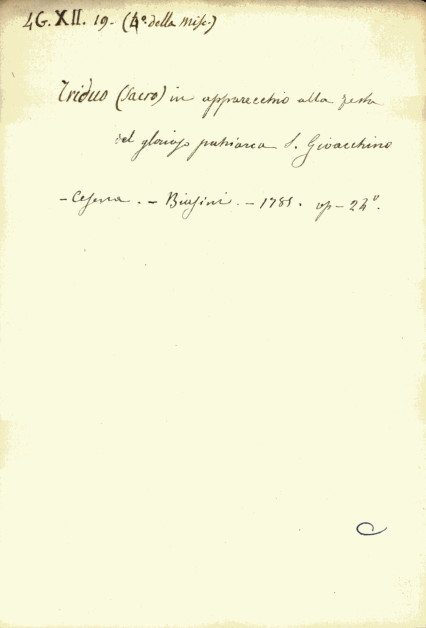 4G.XII. 19. (4º. della Misc.)
Triduo (Sacro) in apparecchio alla festa
del glorioso patriarca S. Gioacchino
- Cesena. - Biasini. - 1785. op - 24º.